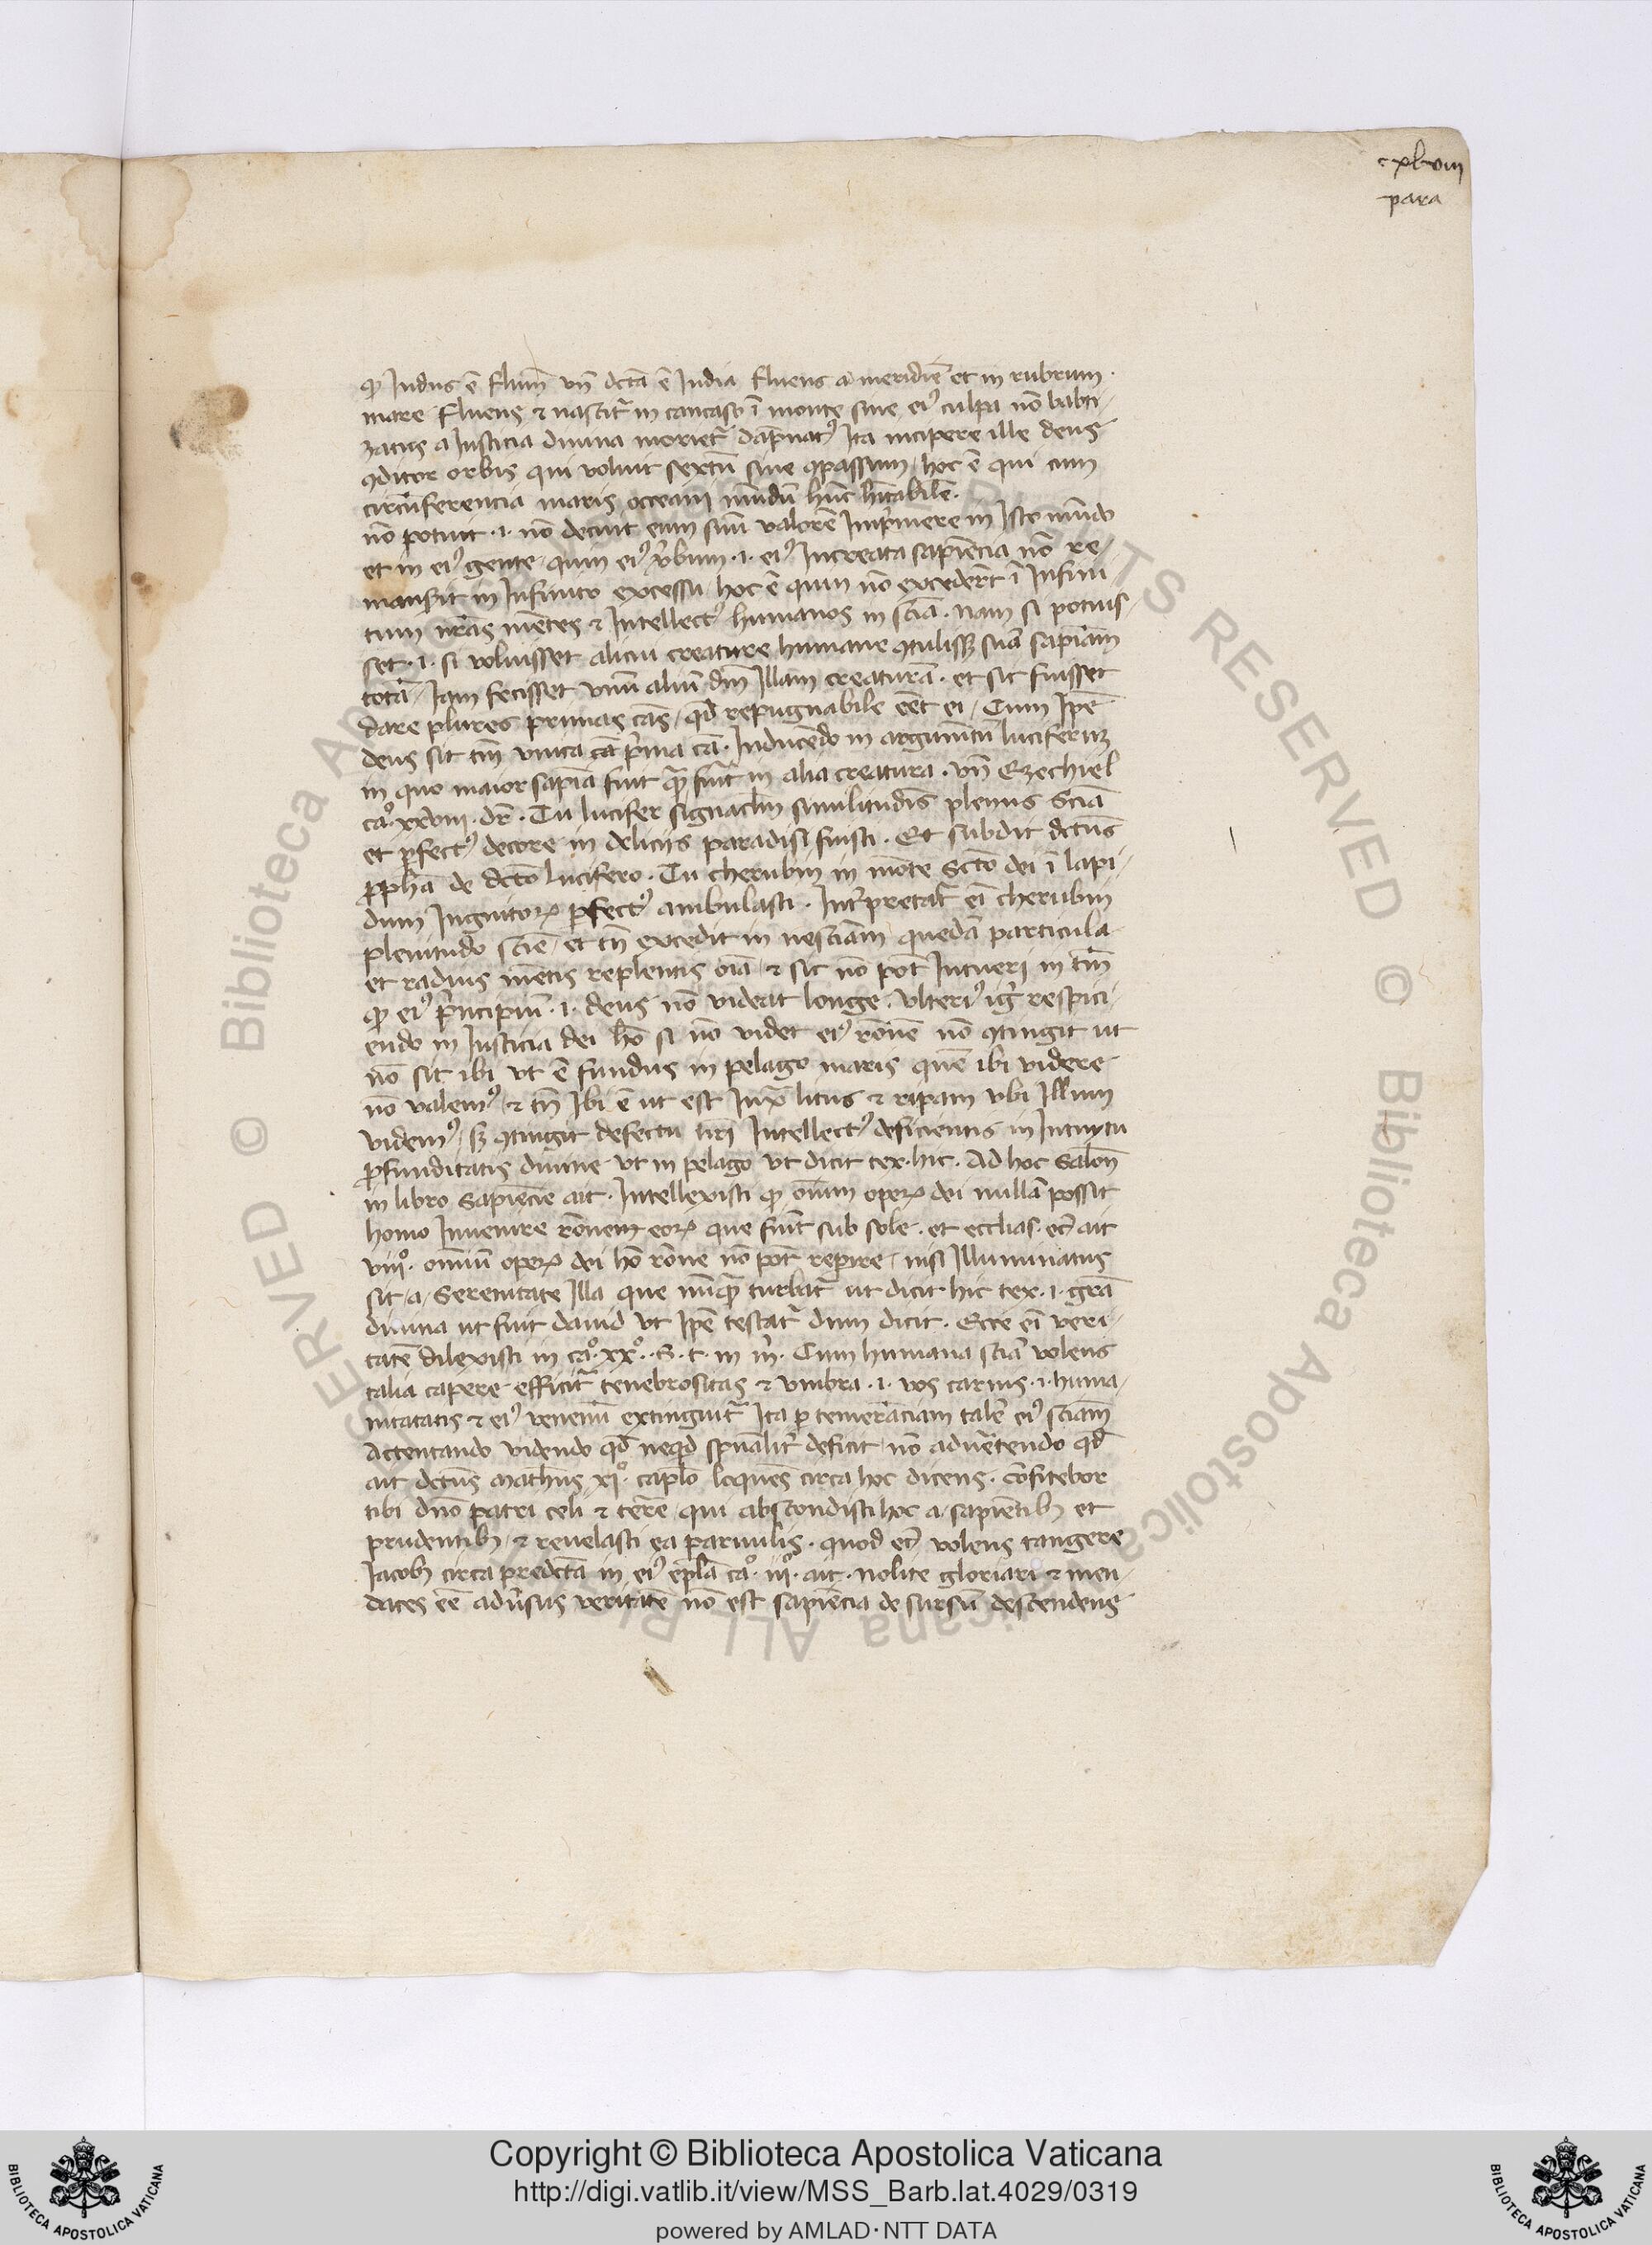 cxlviii
para
ꝙ Indus ē flum̄ vn̄ dctā ē India fluens a meridiē et in rubrum
mare fluens ⁊ nascit᷑ in caucaso ī monte sine eiꝰ culpa nō babti
zatus a Iusticia diuina moriet᷑ dāpnatꝰ Ita incipere ille deus
ꝯditor orbis qui voluit sextū siue ꝯpassum hoc ē qui cum
circūferencia maris occeani mūdū hūc hītabilē.
nō potuit .i. nō decuit eum suū valorē Inprimere in Isto mūdo
et in eiꝰ gente quin eiꝰ v̄bum .i. eiꝰ Increata sapiēcia nō re
mansit in Infinito excessu hoc ē quin nō excederēt ī Infini
tum nr̄as mētes ⁊ Intellectꝰ humanos in sciā. nam si potuis
set .i. si voluisset alicui creature humane ꝯtulisse suā sapiam̄
totā Iam fecisset vnū aliū dm̄ Illam creaturā. et sic fuisset
dare plures primas cās qd̄ repugnabile eēt ei Cum Ipē
deus sit tm̄ vnica cā prima cā. Inducēdo in argumētū luciferum
in quo maior sapīa fuit qua᷑ fuit in alia creatura. vn̄ Ezechiel
cāº xxviii. dr̄. Tu lucifer signaclm̄ similitudīs plenus sciā
et perfectꝰ decore in delicijs paradisi fuisti. Et subdit dctūs
ꝓphā de dctō lucifero. Tu cherubin in mōte sctō dei ī lapi
dum Ignitoꝝ perfectꝰ ambulasti. Interpretat᷑ eī cherubin
plenitudo sciē et tn̄ excedit in nesciam̄ quedā particula
et radius mētis replentis oīa ⁊ sic nō pōt Intueri in tm̄
ꝙ eiꝰ principiū .i. deus nō videat longe. vlteriꝰ igr̄ respici
endo in Iusticiā dei hō si nō videt eiꝰ rōnē nō ꝯtingit ut
nō sit ibi vt ē fundus in pelago maris quē ibi videre
nō valemꝰ ⁊ tn̄ Ibi ē ut est Iuxª litus ⁊ ripam vbi Illum
videmꝰ sꝫ ꝯtingit defectu nr̄i Intellectꝰ deficientis in Intuytu
ꝓfunditatis diuine vt in pelago vt dicit tex. hic. Ad hoc Salon̄
in libro Sapiēcie ait. Intellexisti ꝙ oīum opeꝝ dei nullā possit
homo Inuenire rōnem eoꝝ que fiūt sub sole. et eccl̄ias. ec̄ ait
viijº. omniū opeꝝ dei hō rōnē nō pōt repire nisi Illuminatus
sit a Serenitate Illa que nūqª turbat᷑ ut dicit hic tex .i. grā
diuina ut fuit dauid vt Ipē testat᷑ dum dicit. Ecce eī veri
tatē dilexisti in cāº xxº. S. t. in in̄. Cum humana sciā volens
talia capere efficit᷑ tenebrositas ⁊ vmbra .i. vos carnis .i. huma
nitatatis ⁊ eiꝰ venenū extinguit᷑ Ita ꝑ temeraciam talē eiꝰ sciam̄
Actentando videndo qd̄ neqd̄ spūalit᷑ deficit nō aduertendo qd̄
ait dctūs Mathūs xjº. caplō loquēs circa hoc dicens. cōfitebor
tibi dnō patri celi ⁊ terre qui abscondisti hoc a sapiētibꝫ et
prudentibꝫ ⁊ reuelasti ea paruulis. quod ec̄ volens tangere
Iacobꝫ circa predctā in eiꝰ eplā cāº iijº. ait. nolite gloriari ⁊ men
daces eē aduersus veritatē nō est sapiēcia de sursū descendens
Copyright © Biblioteca Apostolica Vaticana
http://digi.vatlib.it/view/MSS_Barb.lat.4029/0319
powered by AMLAD·NTT DATA
BIBLIOTECA APOSTOLICA VATICANA
BIBLIOTECA APOSTOLICA VATICANA